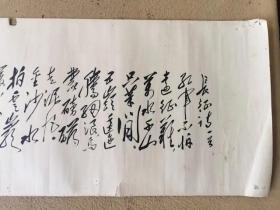 长征诗一首
红军不怕
远征难
万水千山
只等闲
五岭逶迤
腾细浪乌
蒙磅礴
走泥丸
金沙水
拍云崖